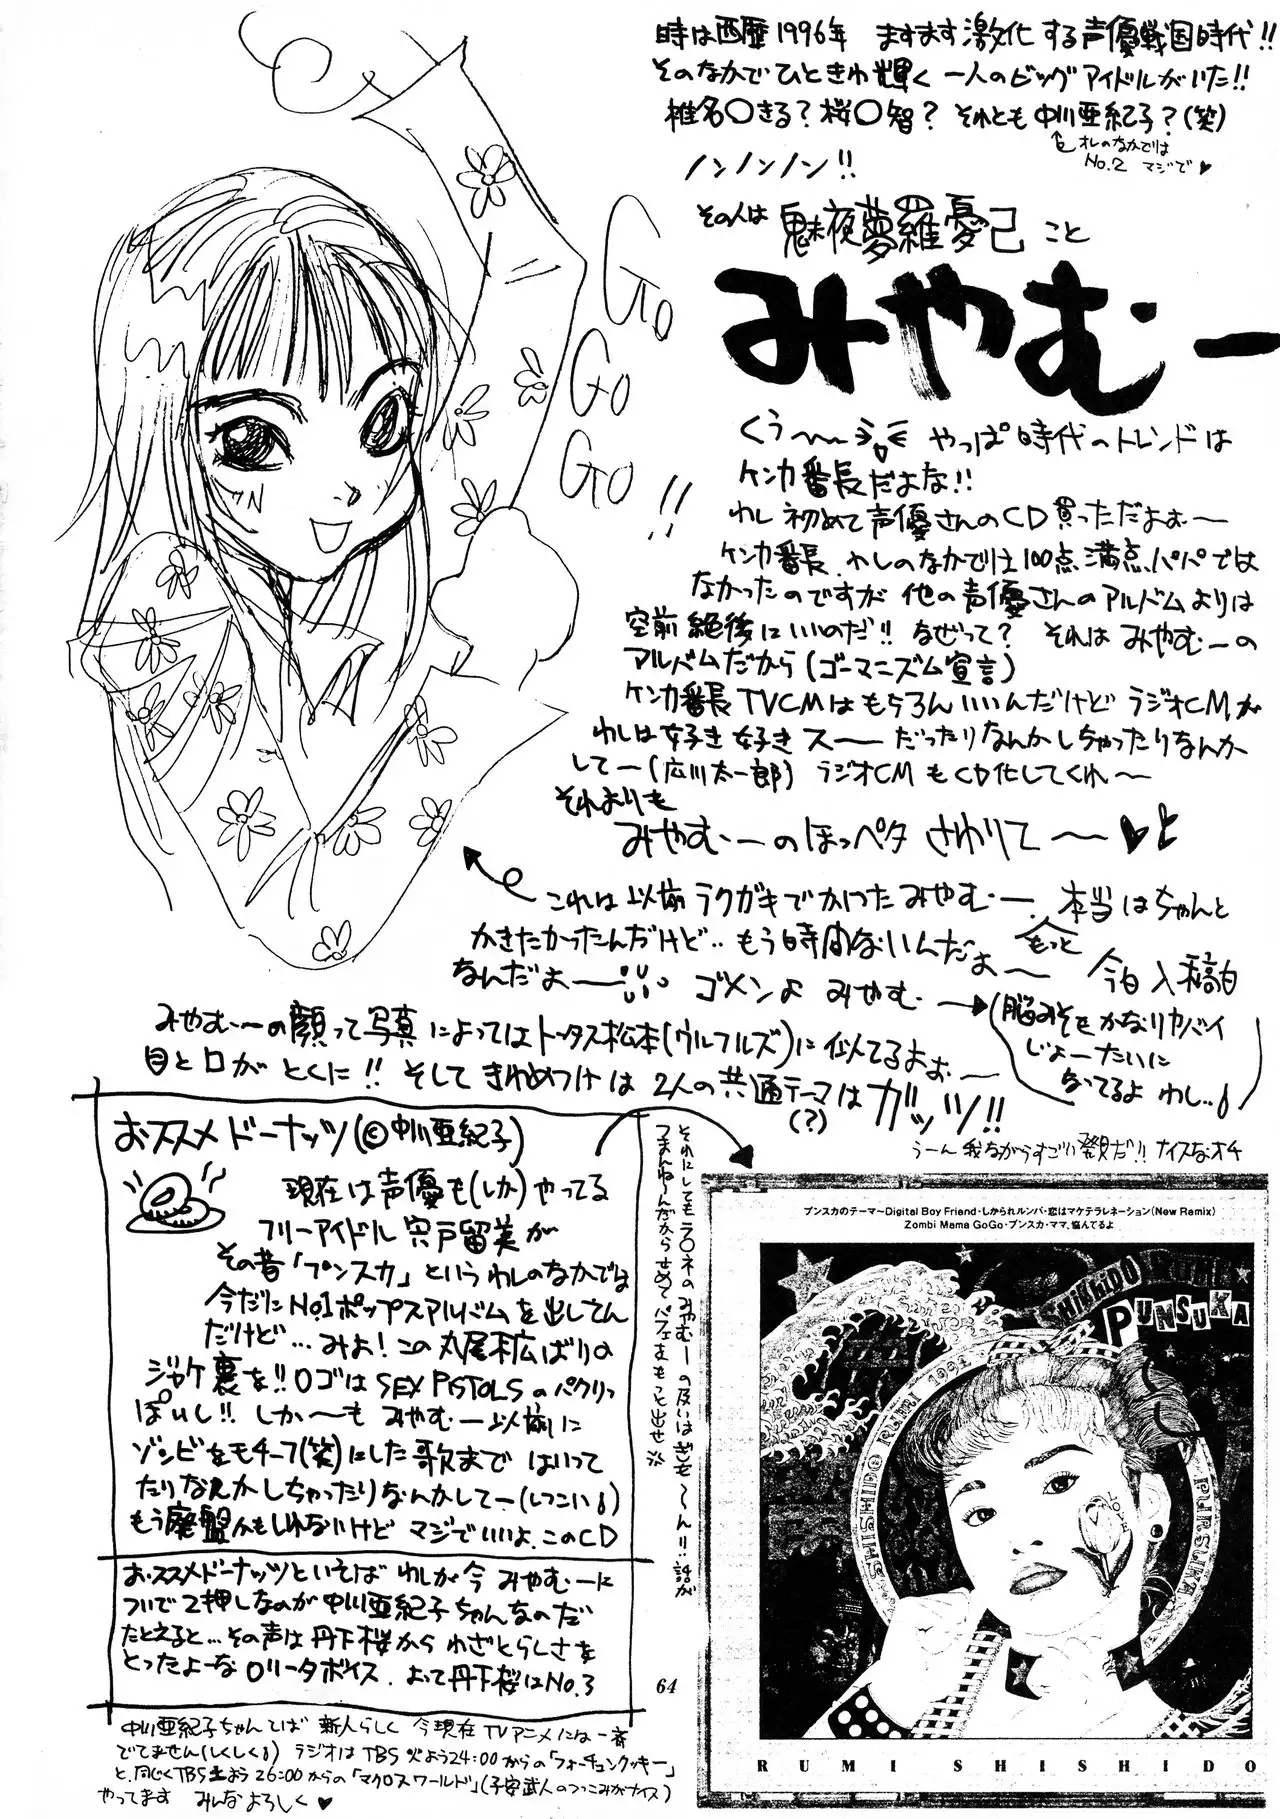 時は西暦1996年 ますます激化する声優戦国時代!!
そのなかでひときわ輝く一人のビッグアイドルがいた!!
椎名〇きる?桜〇智? それとも中川亜紀子?(笑)
オレのなかでは
No.2 マジで♥
ノンノンノン!!
その人は 魅夜夢羅憂己 こと
みやむー
Go
Go
Go!!
くう〜 やっぱ時代のトレンドは
ケンカ番長だよな!!
わし初めて声優さんのCD買っただよぉ〜
ケンカ番長、わしのなかでは100点満点パパでは
なかったのですが 他の声優さんのアルバムよりは
空前絶後にいいのだ!! なぜって? それは みやむーの
アルバムだから(ゴーマニズム宣言)
ケンカ番長TVCMはもちろんいいんだけど ラジオCMが
わしは好き好きス〜だったりなんかしちゃったりなんか
してー(広川太一郎) ラジオCMもCD化してくれ〜
それよりも
みやむーのほっペタ さわりて〜♥
これは以前ラクガキでかいたみやむー、本当はちゃんと
かきたかったんだけど‥もう時間ないんだよぉ〜
もっと
今日入稿日
なんだよぉ〜 ゴメンよ みやむー→
(脳みそもかなりヤバイ
じょーたいに
なってるよ わし..)
みやむーの顔って写真によってはトータス松本(ウルフルズ)に似てるよぉ〜
目と口がとくに!! そして きわめつけは 2人の共通テーマはガッツ!!
(?)
うーん我ながらすごい発見だ!! ナイスなオチ
おススメドーナッツ(©中川亜紀子)
現在は声優も(しか)やってる
フリーアイドル 宍戸留美が
その昔「プンスカ」というわしのなかでは
今だにNo.1ポップスアルバムを出してん
だけど…みよ!この丸尾末広ばりの
ジャケ裏を!!ロゴはSEX PISTOLSのパクリっ
ぽいし!! しか〜も みやむー以前に
ゾンビをモチーフ(笑)にした歌まではいって
たりなんかしちゃったりなんかしてー(しつこい)
もう廃盤かもしれないけど マジでいいよ、このCD
おススメドーナッツといえば わしが今 みやむーに
ついで2押しなのが中川亜紀子ちゃんなのだ
たとえると…その声は丹下桜から わざとらしさを
とったよーなロリータボイス、よって丹下桜はNo.3
中川亜紀子ちゃんてば 新人らしく 今現在TVアニメには一斉
でてません(しくしく) ラジオはTBS火よう24:00からの「フォーチュンクッキー」
と、同じくTBS土よう26:00からの「マクロスワールド」(子安武人のつっこみがナイス)
やってます みんなよろしく♥
それにしてもラ〇ネのみやむーの扱いはぎもーん!!話が
つまんねーんだからせめてパフェもっと出せ
64
プンスカのテーマ〜Digital Boy Friend・しかられルンバ・恋はマケテラレネーション(New Remix)
Zombi Mama GoGo・プンスカ・ママ、悩んでるよ
SHISHIDO RUMI
PUNSUKA
SHISHIDO RUMI 1992
PUNSUKA
LOVE
RUMI SHISHIDO